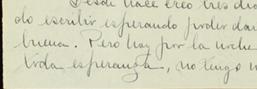 Desde hace creo tres día
do escribir esperando poder dar
buena. Pero hoy por la noche
toda esperanza, no tengo